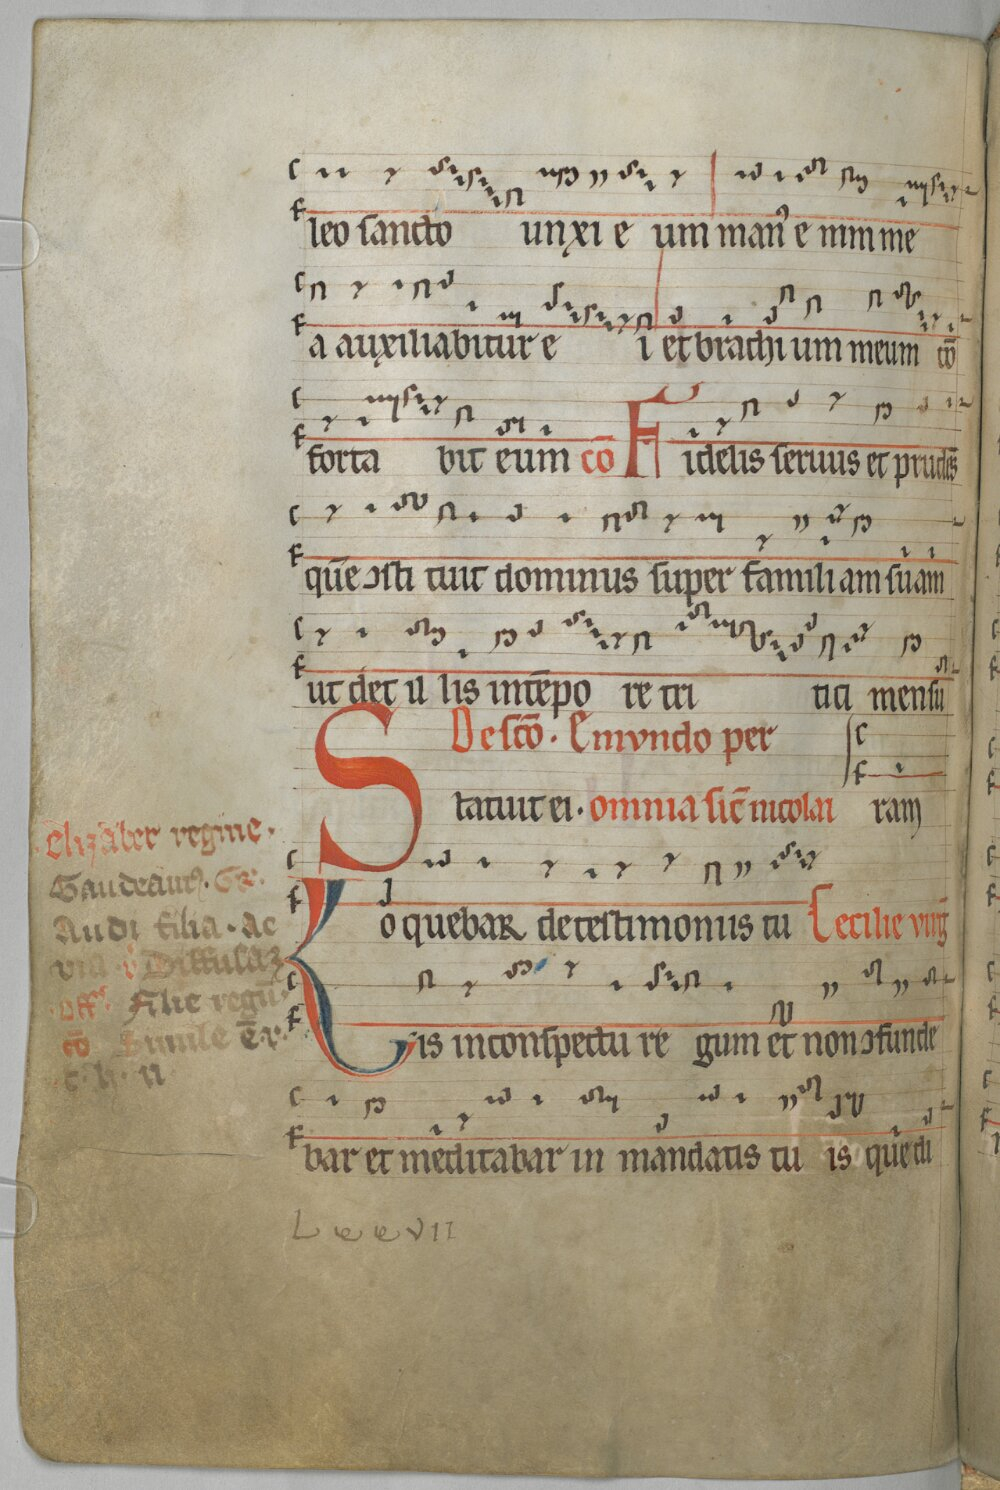 leo sancto unxi e um man᷒ e nim me
a auxiliabitur e i et brachi um meum cō
forta bit eum cō Fidelis seruus et prudēs
quē ↄsti tuit dominus super famili am suam
ut det il lis intēpo re tri tici mensu
De scō. Emvndo per
Statuit ei. omnia sic̄ nicolai ram
Loquebar de testimoniis tu Cecilie virḡ
is in conspectu re gum et non ↄfunde
bar et meditabar in mandatis tu is quē di
elizabet regine.
Gaudeam᷒. Gr.
Audi filia. ac
Diffusa
off. Filie regū
cō Simile ē r.
c. h. n